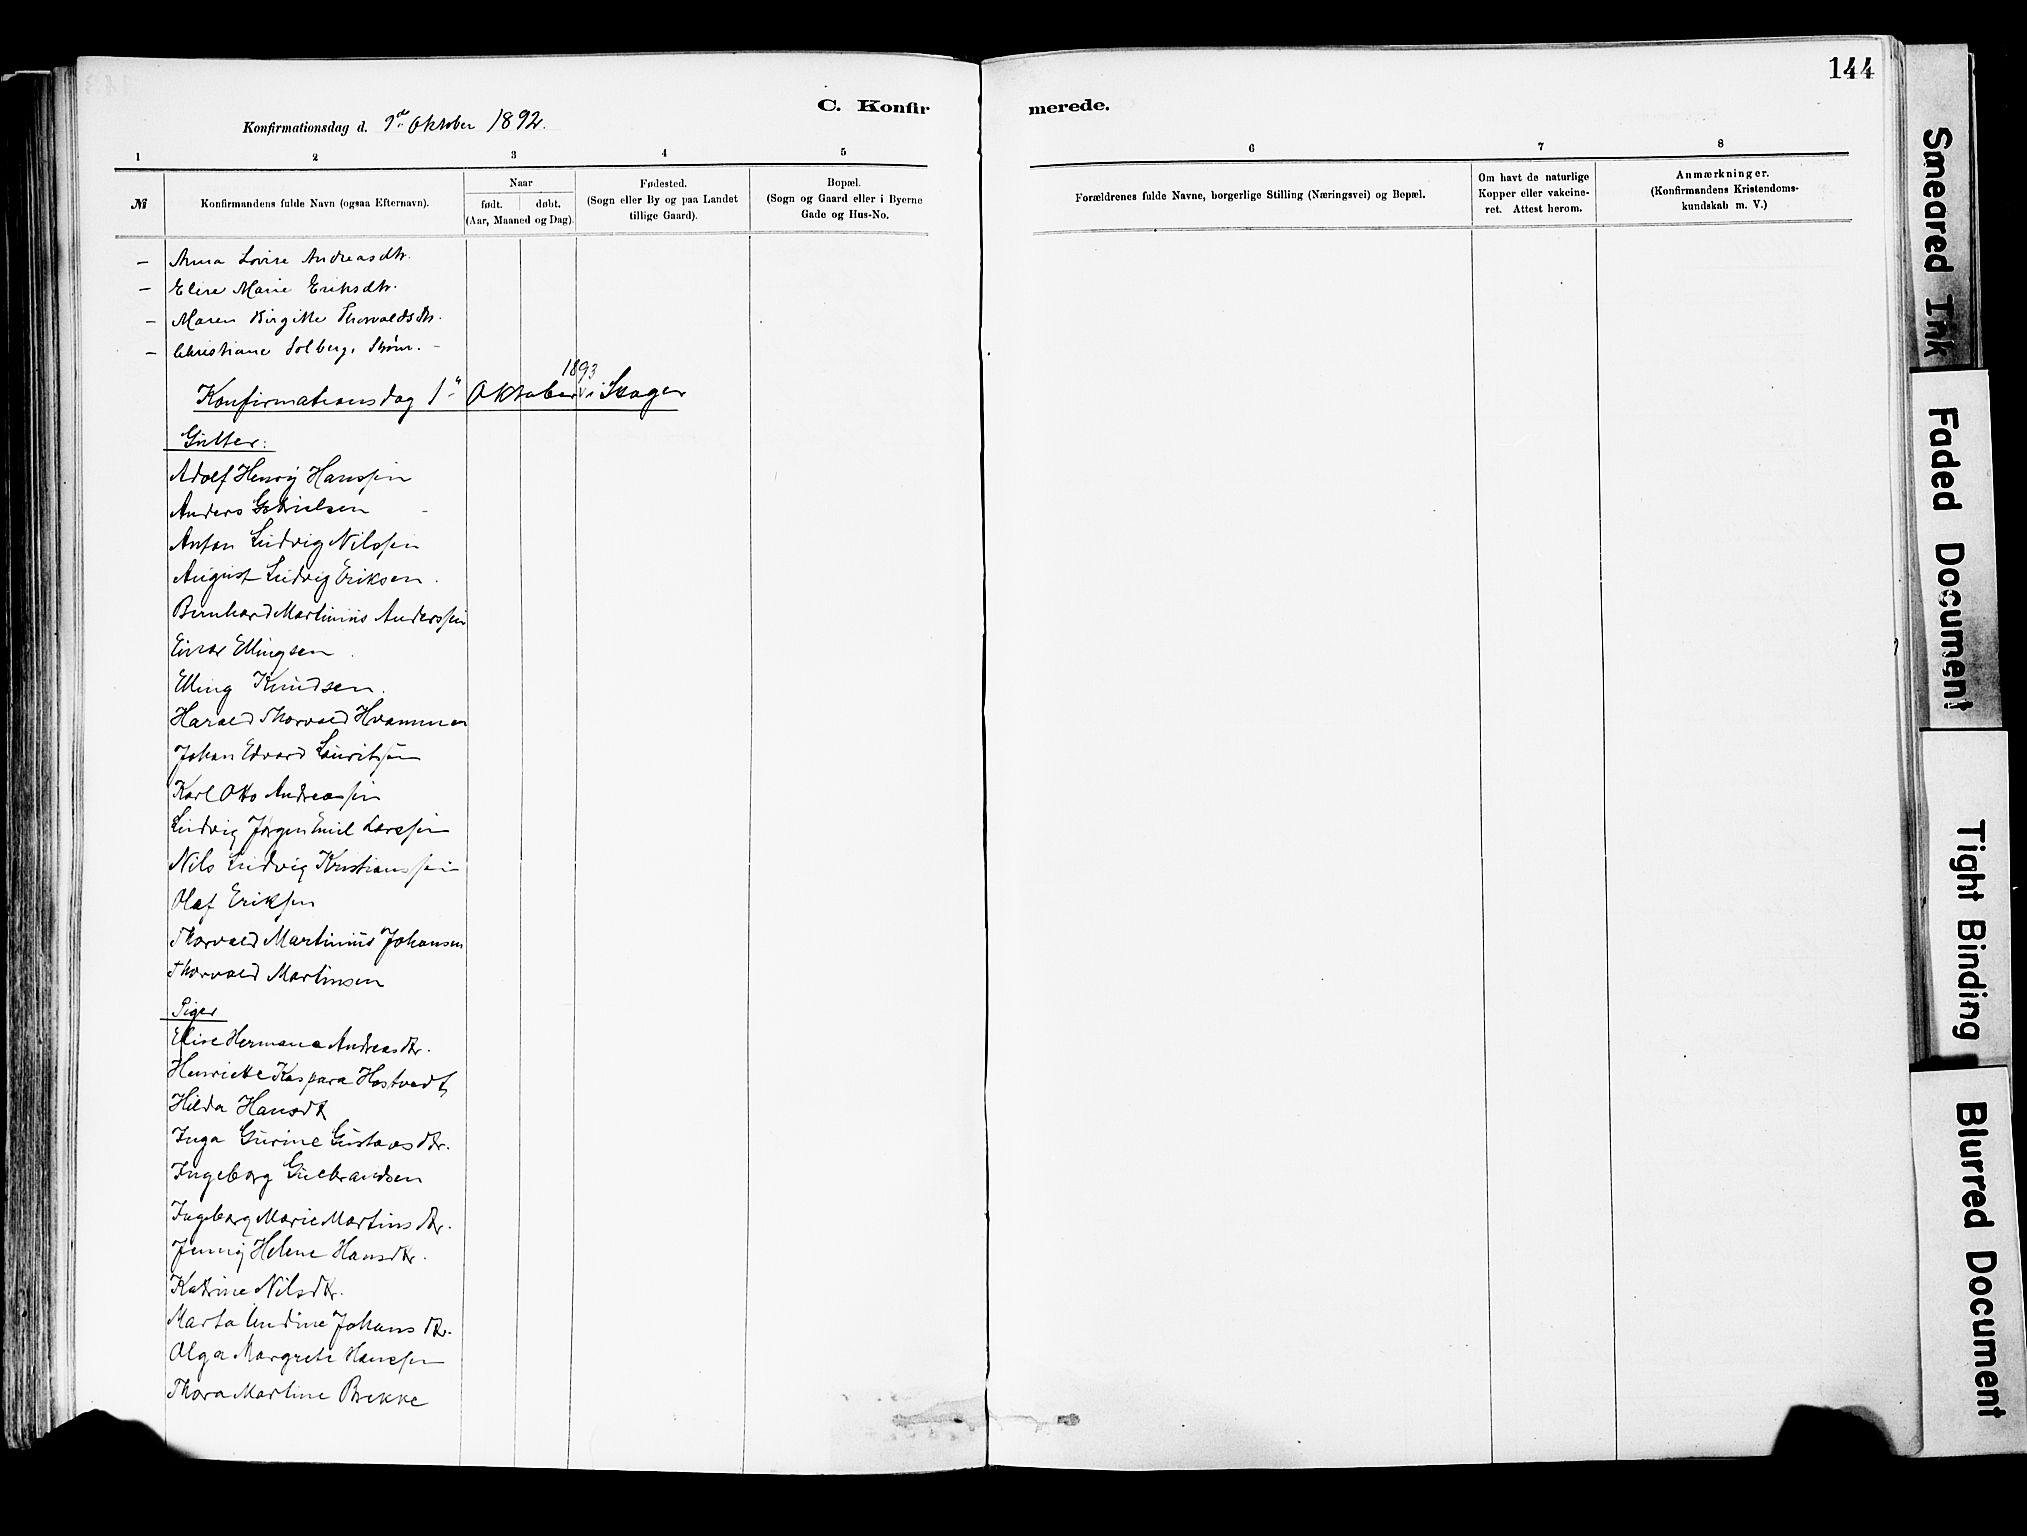 144
C. Konfir merede.
Konfirmationsdag d. 9de Oktober 1892.
1 2 3 4 5 6 7 8
№
Konfirmandens fulde Navn (ogsaa Efternavn).
Naar
født. døbt.
(Aar, Maaned og Dag).
Fødested.
(Sogn eller By og paa Landet
tillige Gaard).
Bopæl.
(Sogn og Gaard eller i Byerne
Gade og Hus-No.
Forældrenes fulde Navne, borgerlige Stilling (Næringsvei) og Bopæl.
Om havt de naturlige
Kopper eller vakcine-
ret. Attest herom.
Anmærkninger.
(Konfirmandens Kristendoms-
kundskab m. V.)
– Anna Lovise Andreasdtr.
– Elise Marie Eriksdtr.
– Maren Birgitte Thorvaldsdtr.
– Christiane Solberg, Strøm. –
Konfirmationsdag 1" Oktober 1893 i Skoger
Gutter:
Adolf Henry Hanssen
Anders Gabrielsen –
Anton Ludvig Nilssen
August Ludvig Eriksen.
Bernhard Martinius Anderssen
Einar Ellingsen.
Elling Knudsen.
Harald Thorvald Hvammen
Johan Edvard Lauritssen
Karl Otto Andreassen
Ludvig Jørgen Emil Larssen
Nils Ludvig Kristianssen
Olaf Erikssen
Thorvald Martinius Johansen
Thorvald Martinsen
Piger
Elise Hermana Andreasdtr.
Henriette Kaspara Hostvedt
Hilda Hansdt
Inga Gurine Gustavsdtr.
Ingeborg Gulbrandsen
Ingeborg Marie Martinsdtr.
Jenny Helene Hansdtr.
Katrine Nilsdtr.
Marta Undine Johansdtr.
Olga Margrete Hanssen
Thora Martine Brekke
Smeared Ink
Faded Document
Tight Binding
Blurred Document